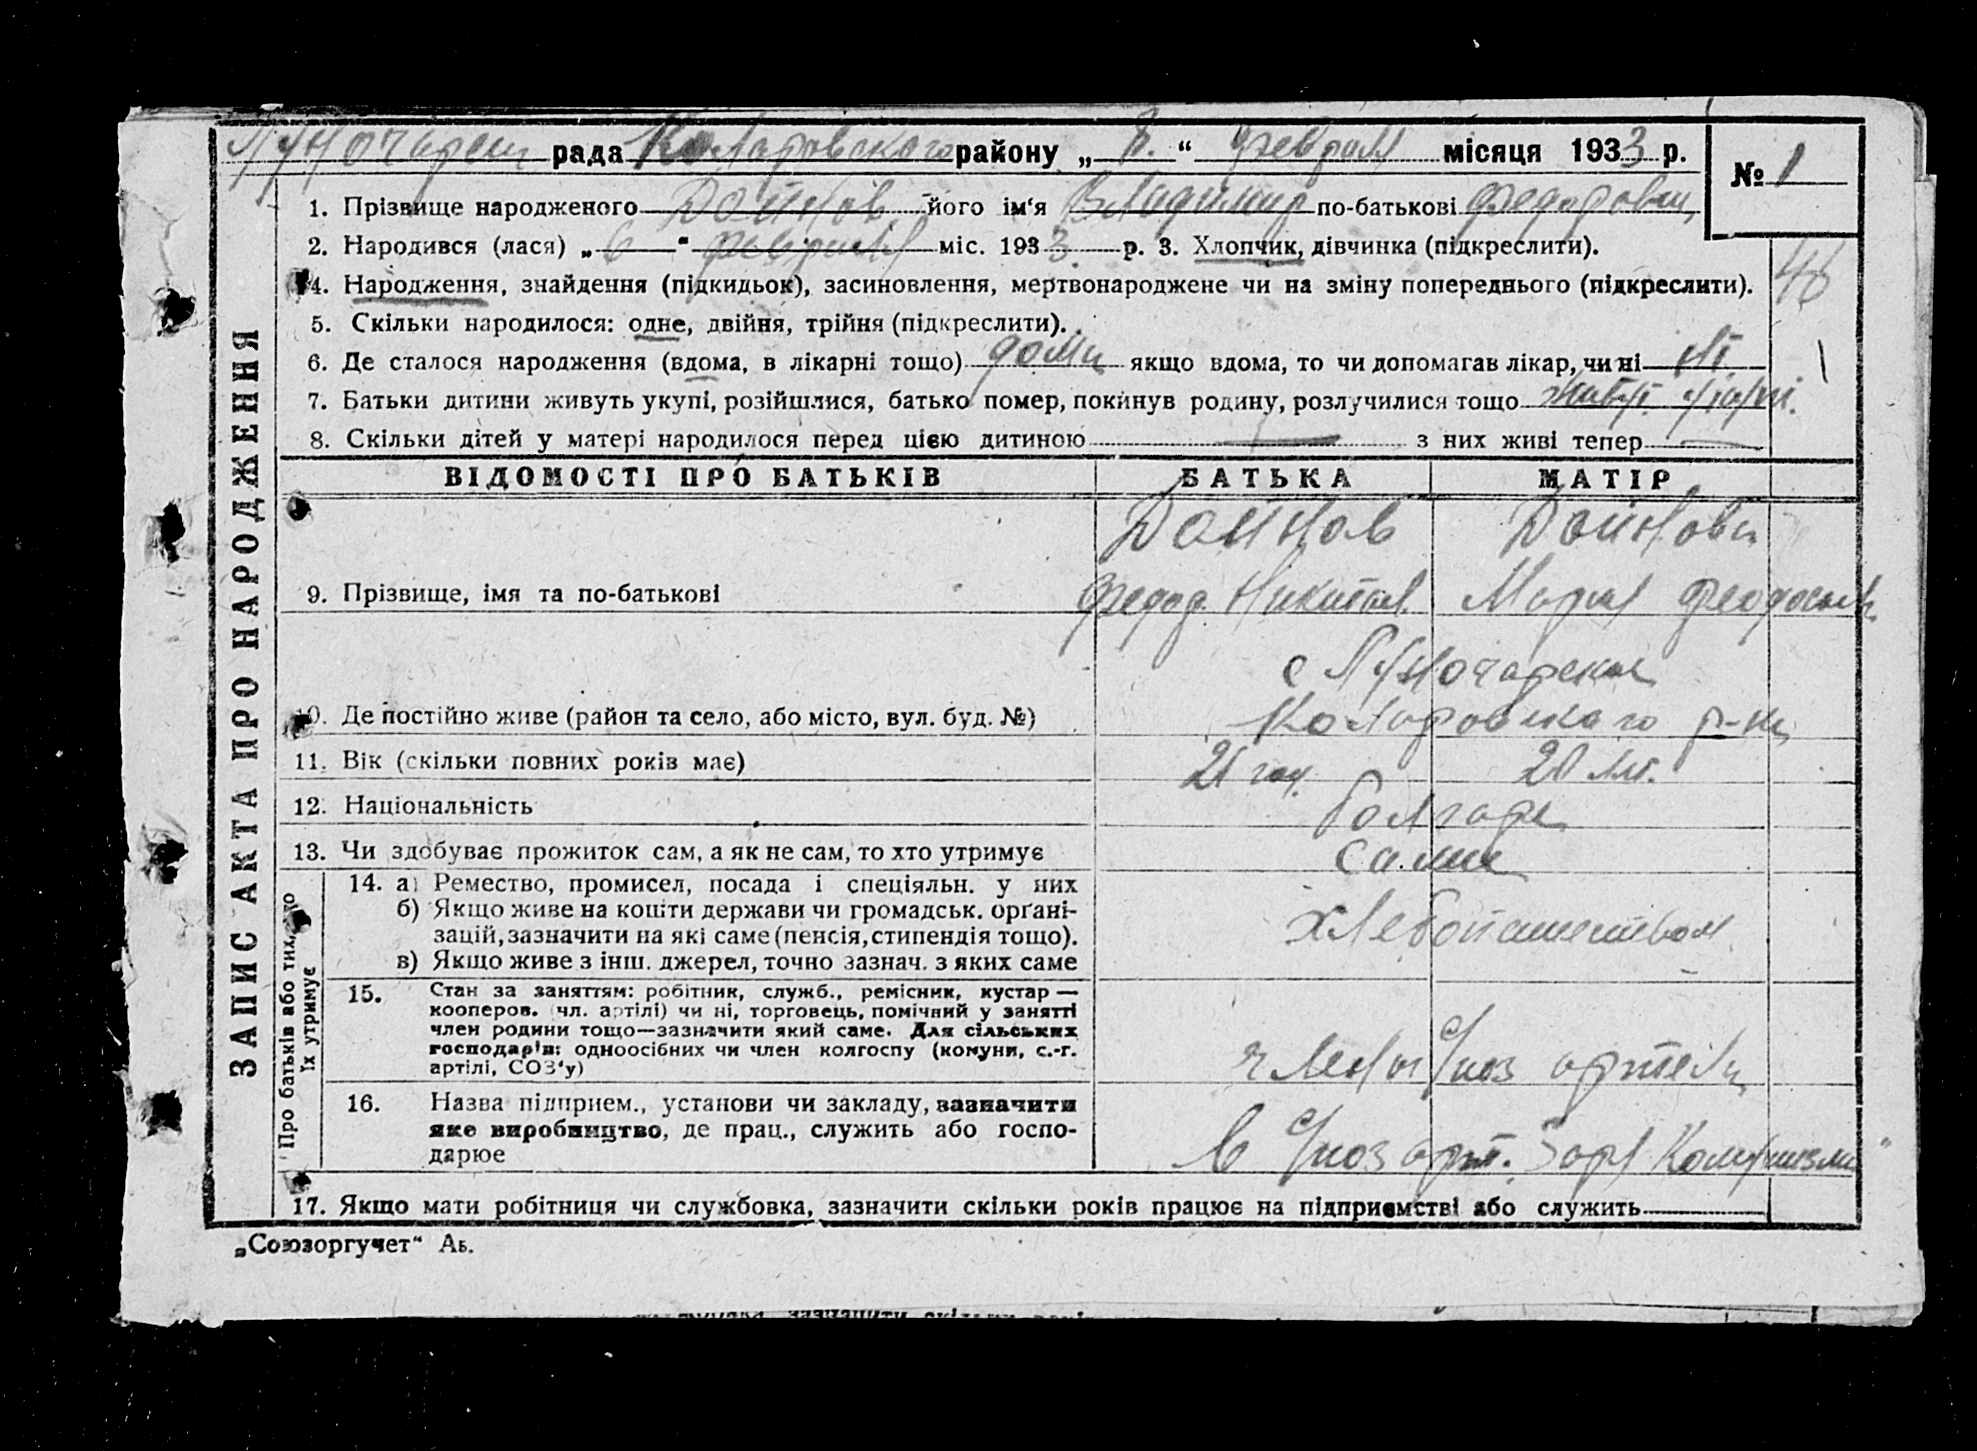 Луночарск рада Коларовского району „ 8. “ февраля місяця 1933 р. № 1
1. Прізвище народженого Дойнов його ім‘я Владимир по-батькові Федорович
2. Народився (лася) „ 6 “ февраля міс. 1933 р. 3. Хлопчик, дівчинка (підкреслити).
46
4. Народження, знайдення (підкидьок), засиновлення, мертвонароджене чи на зміну попереднього (підкреслити).
5. Скільки народилося: одне, двійня, трійня (підкреслити).
6. Де сталося народження (вдома, в лікарні тощо) дома якщо вдома, то чи допомагав лікар, чи ні ні
7. Батьки дитини живуть укупі, розійшлися, батько помер, покинув родину, розлучилися тощо
8. Скільки дітей у матері народилося перед цією дитиною — з них живі тепер —
ЗАПИС АКТА ПРО НАРОДЖЕННЯ
ВІДОМОСТІ ПРО БАТЬКІВ БАТЬКА МАТІР
Дойнов Дойнова
9. Прізвище, імя та по-батькові Федор Никитов. Мария Феодосьев
с Луночарская
10. Де постійно живе (район та село, або місто, вул. буд. №) Коларовского р-на
11. Вік (скільки повних років має) 21 год. 20 лет.
12. Національність болгаре
13. Чи здобуває прожиток сам, а як не сам, то хто утримує сами
Про батьків або тих, хто їх утримує
14. а) Ремество, промисел, посада і спеціяльн. у них
б) Якщо живе на кошти держави чи громадськ. орґані-
зацій, зазначити на які саме (пенсія, стипендія тощо).
хлебопашеством
в) Якщо живе з інш. джерел, точно зазнач. з яких саме
15. Стан за заняттям: робітник, служб., ремісник, кустар —
кооперов. (чл. артілі) чи ні, торговець, помічний у занятті
член родини тощо—зазначити який саме. Для сільських
господарів: одноосібних чи член колгоспу (комуни, с.-г.
артілі, СОЗ‘у)
члены с/хоз артели
16. Назва підприєм., установи чи закладу, зазначити
яке виробництво, де прац., служить або госпо-
дарює
в с/хоз арт. Заря Коммунизма"
17. Якщо мати робітниця чи службовка, зазначити скільки років працює на підприємстві або служить
„Союзоргучет“ Аь.